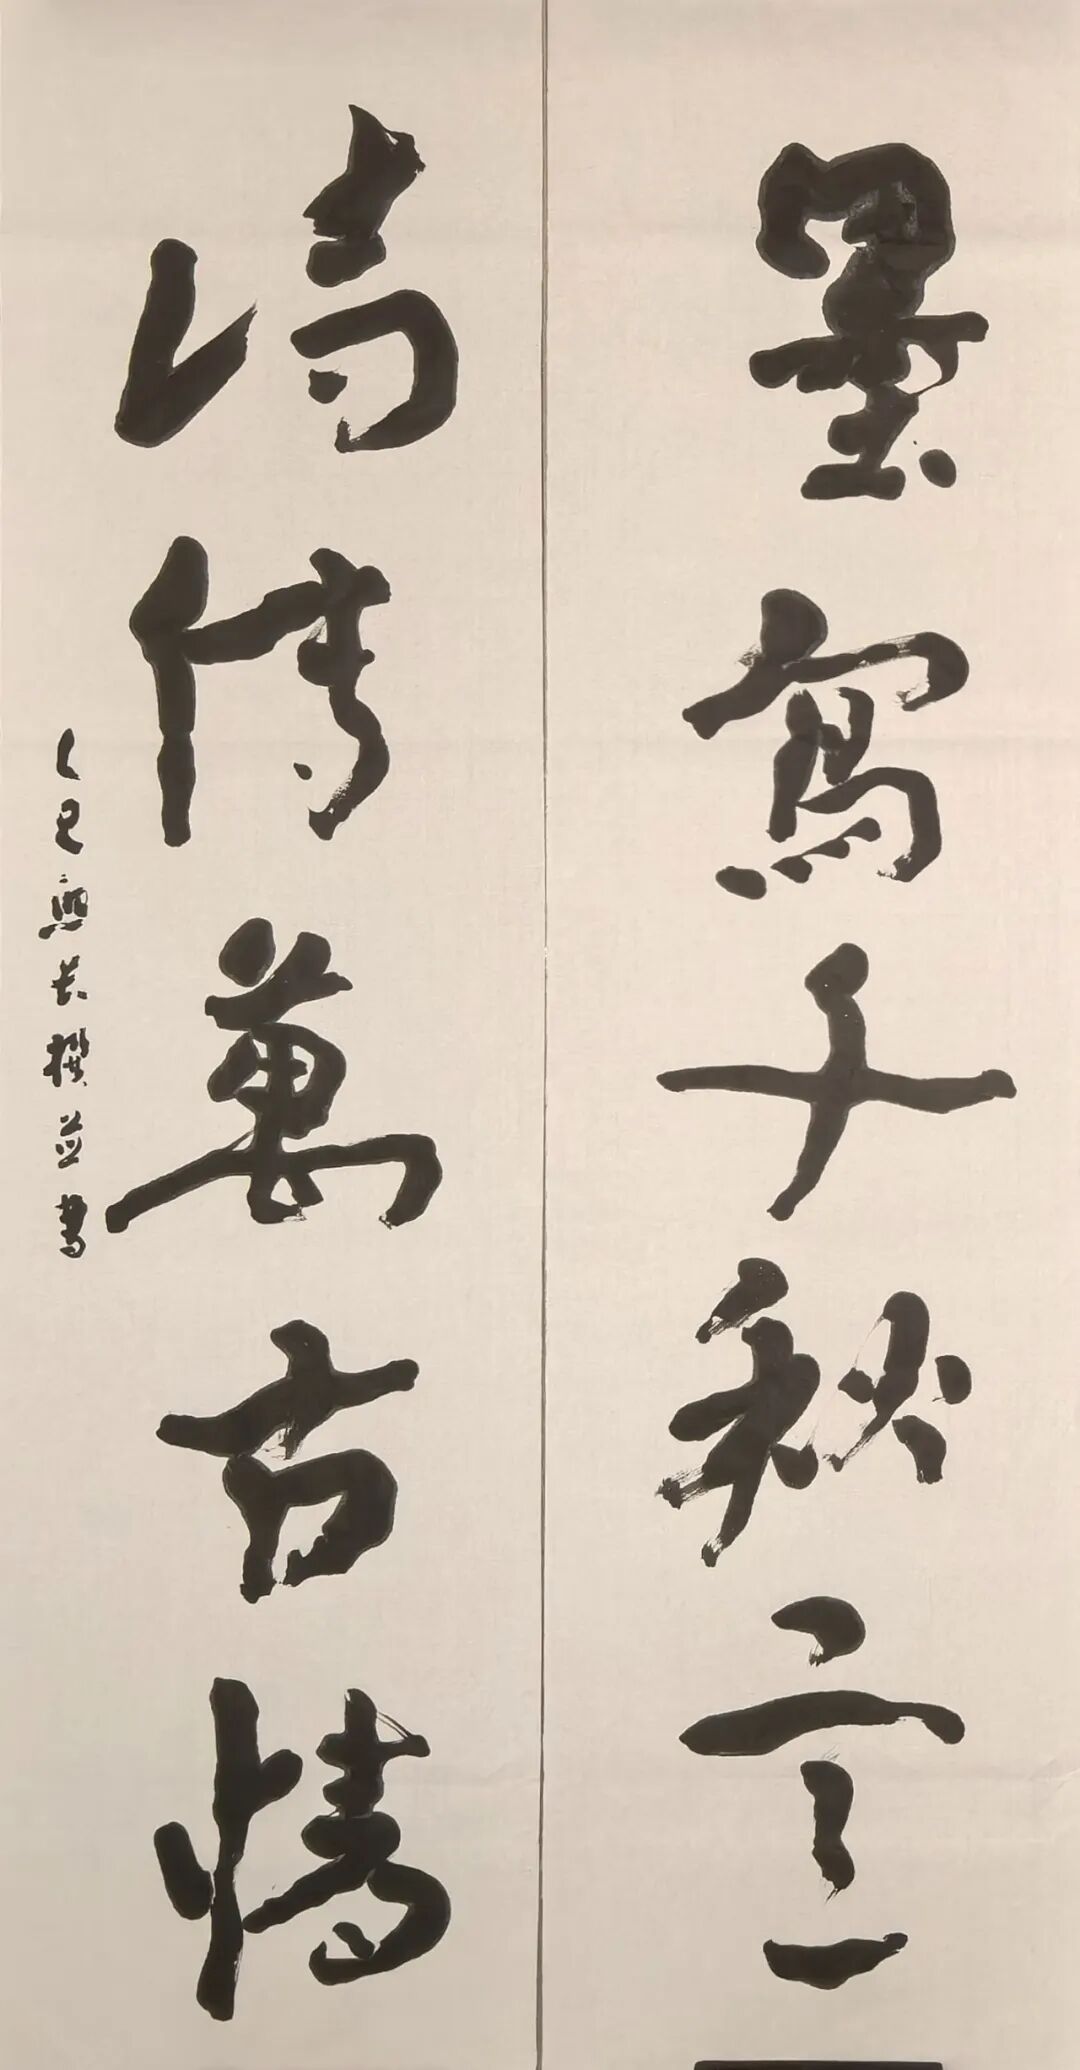 墨寫千秋意
詩傳萬古情
乙巳長撰並書